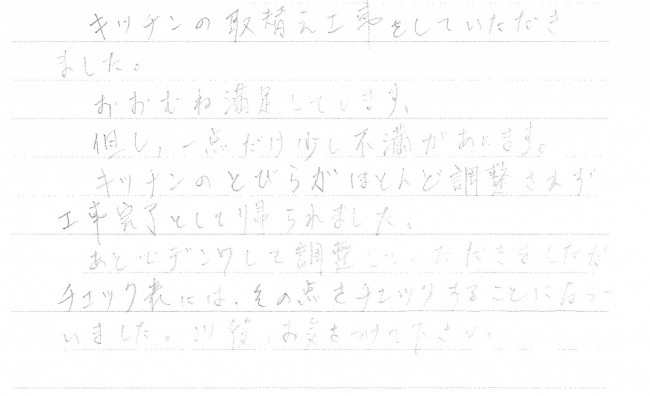 キッチンの取替え工事をしていただき
ました。
おおむね満足しています。
但し、一点だけ少し不満があります。
キッチンのとびらがほとんど調整されず
工事完了として帰られました。
あとでデンワして調整していただきましたが
チェック表には、その点をチェックすることになって
いました。以後、お気をつけて下さい。